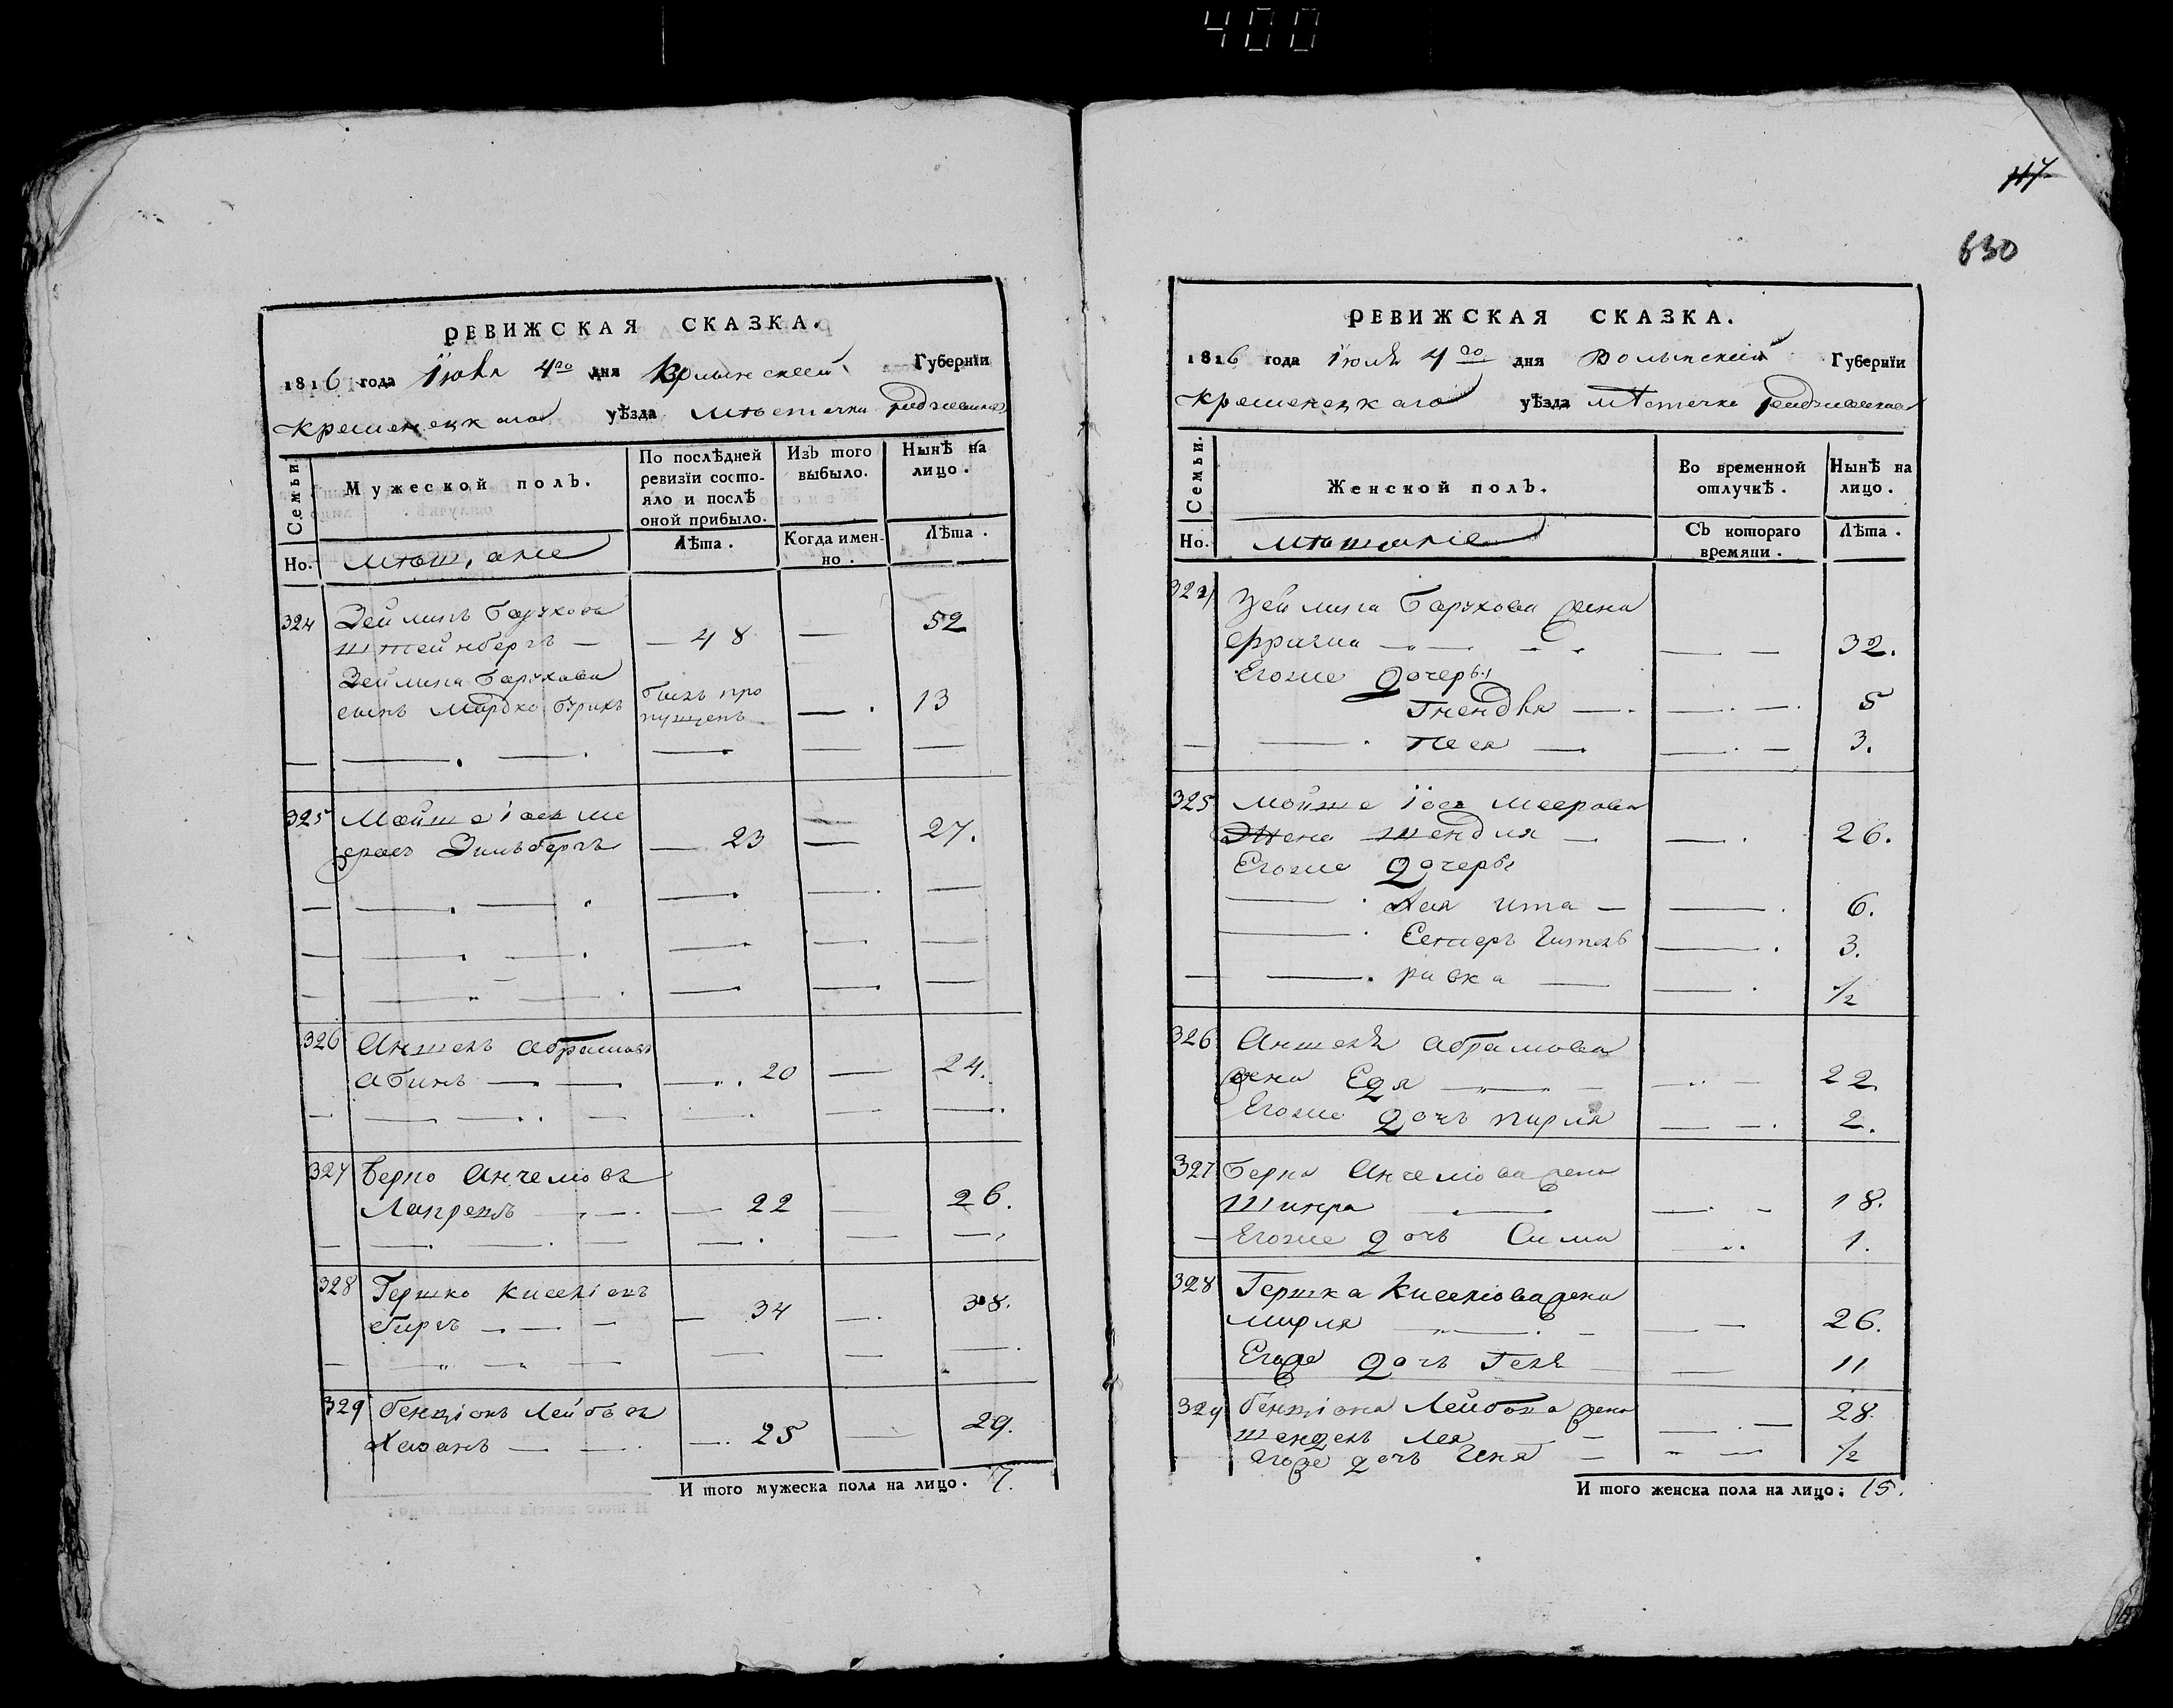 400
117
630
РЕВИЖСКАЯ СКАЗКА.
1816 года Іюля 4го дня Волынской Губерніи
Кременецкаго уѣзда Мѣстечка Радзивилова
Семьи.
Мужеской полъ.
По послѣдней ревизіи состо-
яло и послѣ
оной прибыло.
Изъ того
выбыло.
Нынѣ на
лицо.
Но.
мѣщане
Лѣта.
Когда имен-
но.
Лѣта.
324 Зейликъ Барухова
штейнбергъ — 48 — 52
Зейлика Барухова
сынъ Мордко Бурихъ былъ про
пущенъ — 13
325 Мойше Іось Ме
еровъ Зильбергъ — 23 — 27.
326 Аншель Абрамовъ
абинъ — 20 — 24.
327 Берко Анчеліовъ
— 22 — 26.
328 Гершко Киселіовъ
— 34 — 38.
329 бенціонъ Лейбовъ
Хазанъ — 25 — 29.
И того мужеска пола на лицо. 7.
РЕВИЖСКАЯ СКАЗКА.
1816 года Іюля 4го дня Волынской Губерніи
Кременецкаго уѣзда мѣстечка Радзивилова
Семьи.
Женской полъ.
Во временной
отлучкѣ.
Нынѣ на
лицо.
Но.
Съ котораго
времяни.
Лѣта.
324 Зейлика Барухова жена
— 32.
Егоже дочеры
Гнендля — 5
Песя — 3.
325 Мойше Іося Меерова
Жена шендля — 26.
Егоже дочеры
Хая ита — 6.
Естеръ Гитель — 3.
ривка — 1/2
326 Аншеля Абрамова
жена Едя — 22
Егоже дочь пирля — 2.
327 Берка Анчеліова жена
Шифра — 18.
Егоже дочь Сима — 1.
328 Гершка Киселіова жена
мирля — 26.
Егоже дочь Геня — 11
329 бенціона Лейбова жена 28
шендель Лея
егоже дочь Геня — 1/2
И того женска пола на лицо: 15.